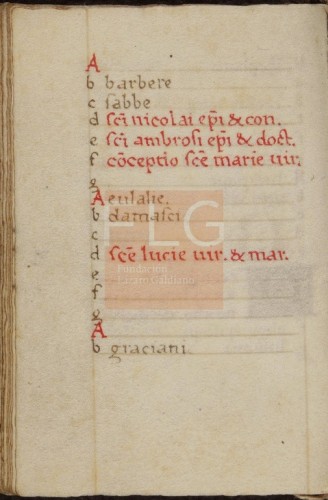 A
b barbere
c sabbe
d sc̄i nicolai ep̄i & con.
e sc̄i ambrosi ep̄i & doct.
f cōceptio sc̄e marie uir.
g
A eulalie.
b damasci
c
d sc̄e lucie uir. & mar.
e
f
g
A
b graciani
FLG
Fundación
Lázaro Galdiano